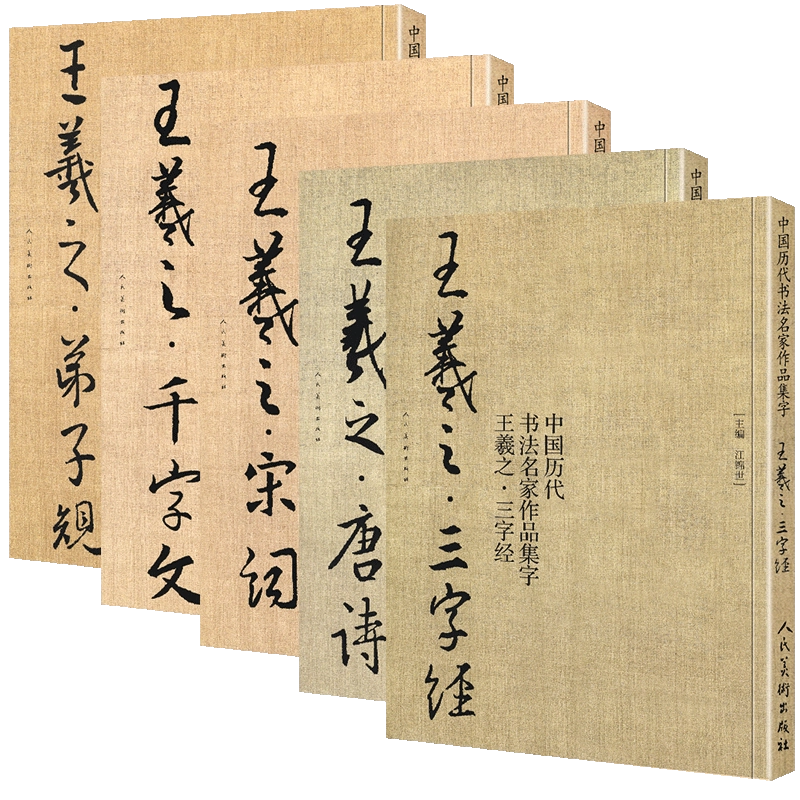 王羲之·弟子规
人民美術出版社
中国
王羲之·千字文
人民美術出版社
中国
王羲之·宋词
人民美術出版社
中国
王羲之·唐诗
人民美術出版社
中国
王羲之·三字经
人民美術出版社
中国历代
书法名家作品集字
王羲之·三字经
[主编 江锦世]
中国历代书法名家作品集字
王羲之·三字经
人民美術出版社